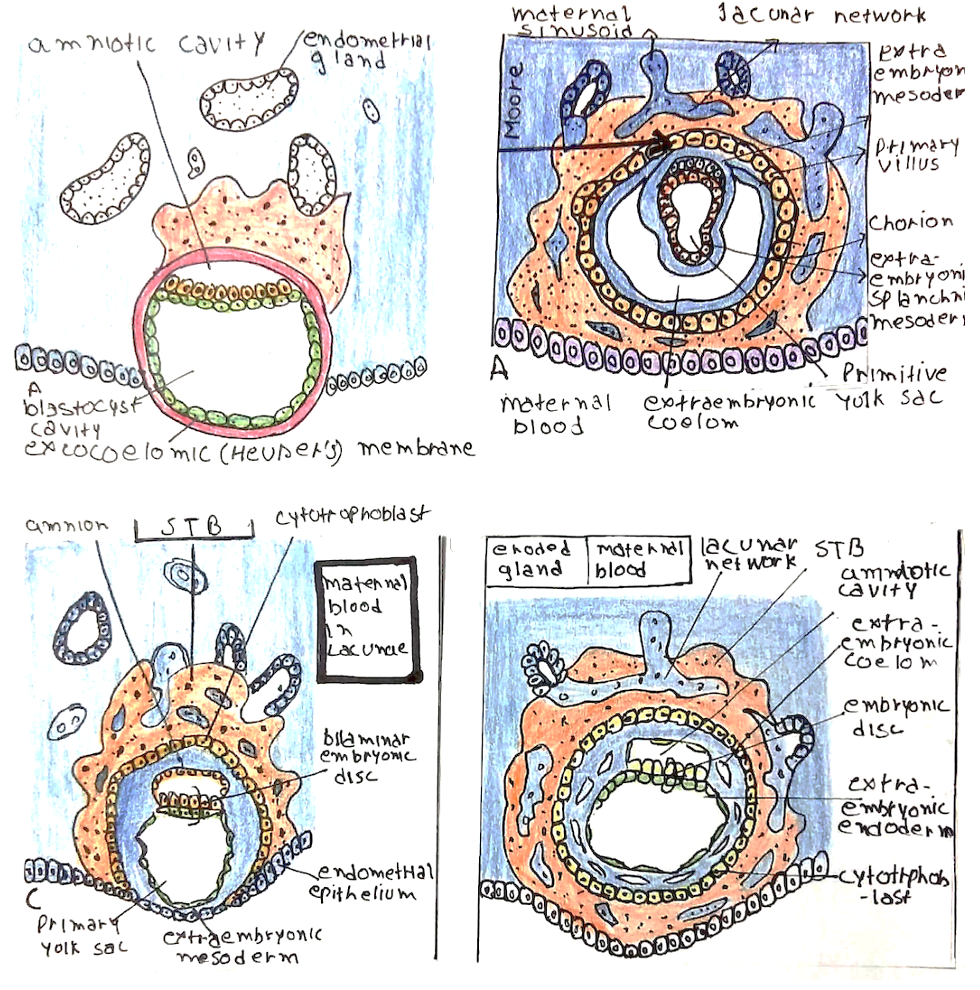 amniotic cavity
endometrial
gland
A
blastocyst
cavity
exocoelomic (Heuser's) membrane
maternal
sinusoid
lacunar network
Moore
extra
embryon
mesoder
primary
villus
Chorion
extra-
embryoni
splanchni
mesoder
A
Primitive
yolk sac
maternal
blood
extraembryonic
coelom
amnion
STB
cytotrophoblast
maternal
blood
in
Lacunae
bilaminar
embryonic
disc
endometrial
epithelium
C
Primary
yolk sac
extraembryonic
mesoderm
eroded
gland
maternal
blood
lacunar
network
STB
amniotic
cavity
extra-
embryonic
coelom
embryonic
disc
extra-
embryonic
endoderm
cytotrphob
-last